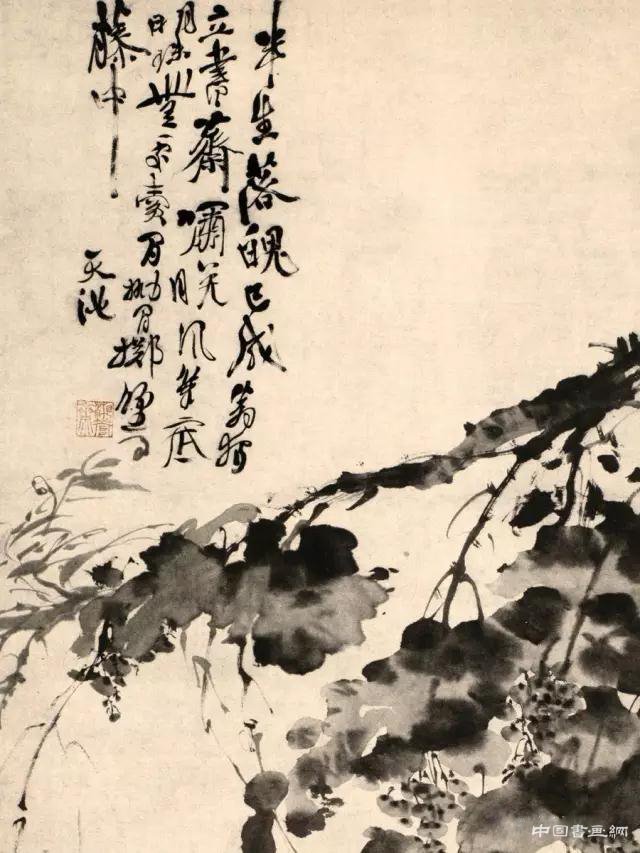 半生落魄已成翁獨
立書齋嘯晚風筆底
明珠無處賣閒拋閒擲野
藤中
天池
中国書画網